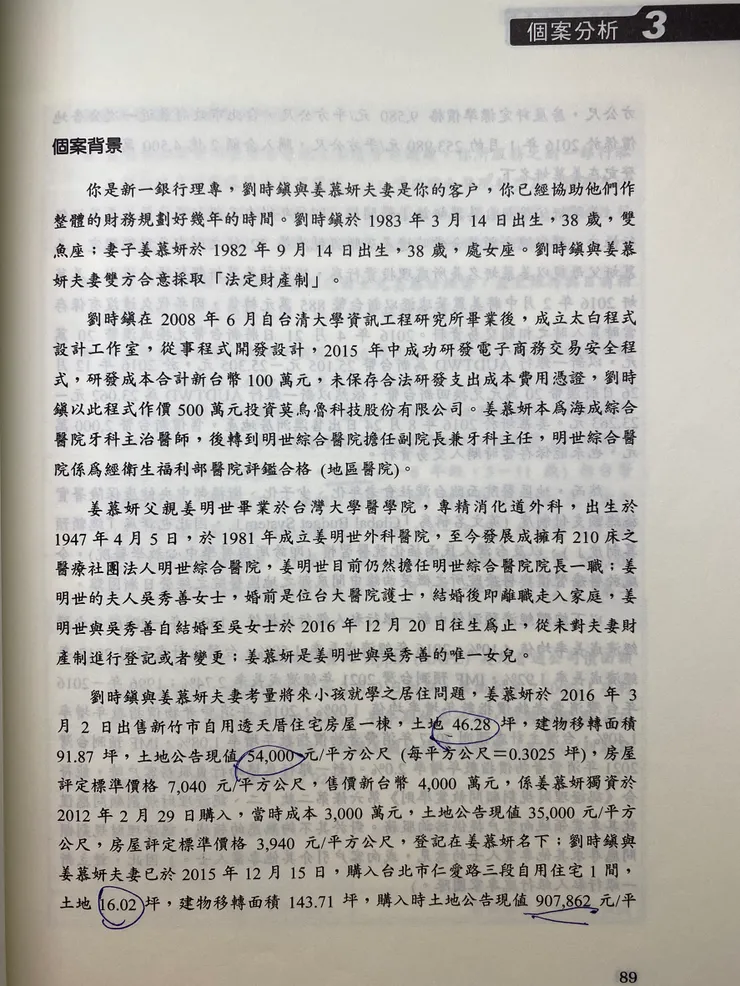 個案分析 3
個案背景
你是新一銀行理專，劉時鎮與姜慕妍夫妻是你的客戶，你已經協助他們作
整體的財務規劃好幾年的時間。劉時鎮於 1983 年 3 月 14 日出生，38 歲，雙
魚座；妻子姜慕妍於 1982 年 9 月 14 日出生，38 歲，處女座。劉時鎮與姜慕
妍夫妻雙方合意採取「法定財產制」。
劉時鎮在 2008 年 6 月自台清大學資訊工程研究所畢業後，成立太白程式
設計工作室，從事程式開發設計，2015 年中成功研發電子商務交易安全程
式，研發成本合計新台幣 100 萬元，未保存合法研發支出成本費用憑證，劉時
鎮以此程式作價 500 萬元投資莫烏魯科技股份有限公司。姜慕妍本為海成綜合
醫院牙科主治醫師，後轉到明世綜合醫院擔任副院長兼牙科主任，明世綜合醫
院係為經衛生福利部醫院評鑑合格 (地區醫院)。
姜慕妍父親姜明世畢業於台灣大學醫學院，專精消化道外科，出生於
1947 年 4 月 5 日，於 1981 年成立姜明世外科醫院，至今發展成擁有 210 床之
醫療社團法人明世綜合醫院，姜明世目前仍然擔任明世綜合醫院院長一職；姜
明世的夫人吳秀善女士，婚前是位台大醫院護士，結婚後即離職走入家庭，姜
明世與吳秀善自結婚至吳女士於 2016 年 12 月 20 日往生為止，從未對夫妻財
產制進行登記或者變更；姜慕妍是姜明世與吳秀善的唯一女兒。
劉時鎮與姜慕妍夫妻考量將來小孩就學之居住問題，姜慕妍於 2016 年 3
月 2 日出售新竹市自用透天厝住宅房屋一棟，土地 46.28 坪，建物移轉面積
91.87 坪，土地公告現值 54,000 元/平方公尺 (每平方公尺＝0.3025 坪)，房屋
評定標準價格 7,040 元/平方公尺，售價新台幣 4,000 萬元，係姜慕妍獨資於
2012 年 2 月 29 日購入，當時成本 3,000 萬元，土地公告現值 35,000 元/平方
公尺，房屋評定標準價格 3,940 元/平方公尺，登記在姜慕妍名下；劉時鎮與
姜慕妍夫妻已於 2015 年 12 月 15 日，購入台北市仁愛路三段自用住宅 1 間，
土地 16.02 坪，建物移轉面積 143.71 坪，購入時土地公告現值 907,862 元/平
89